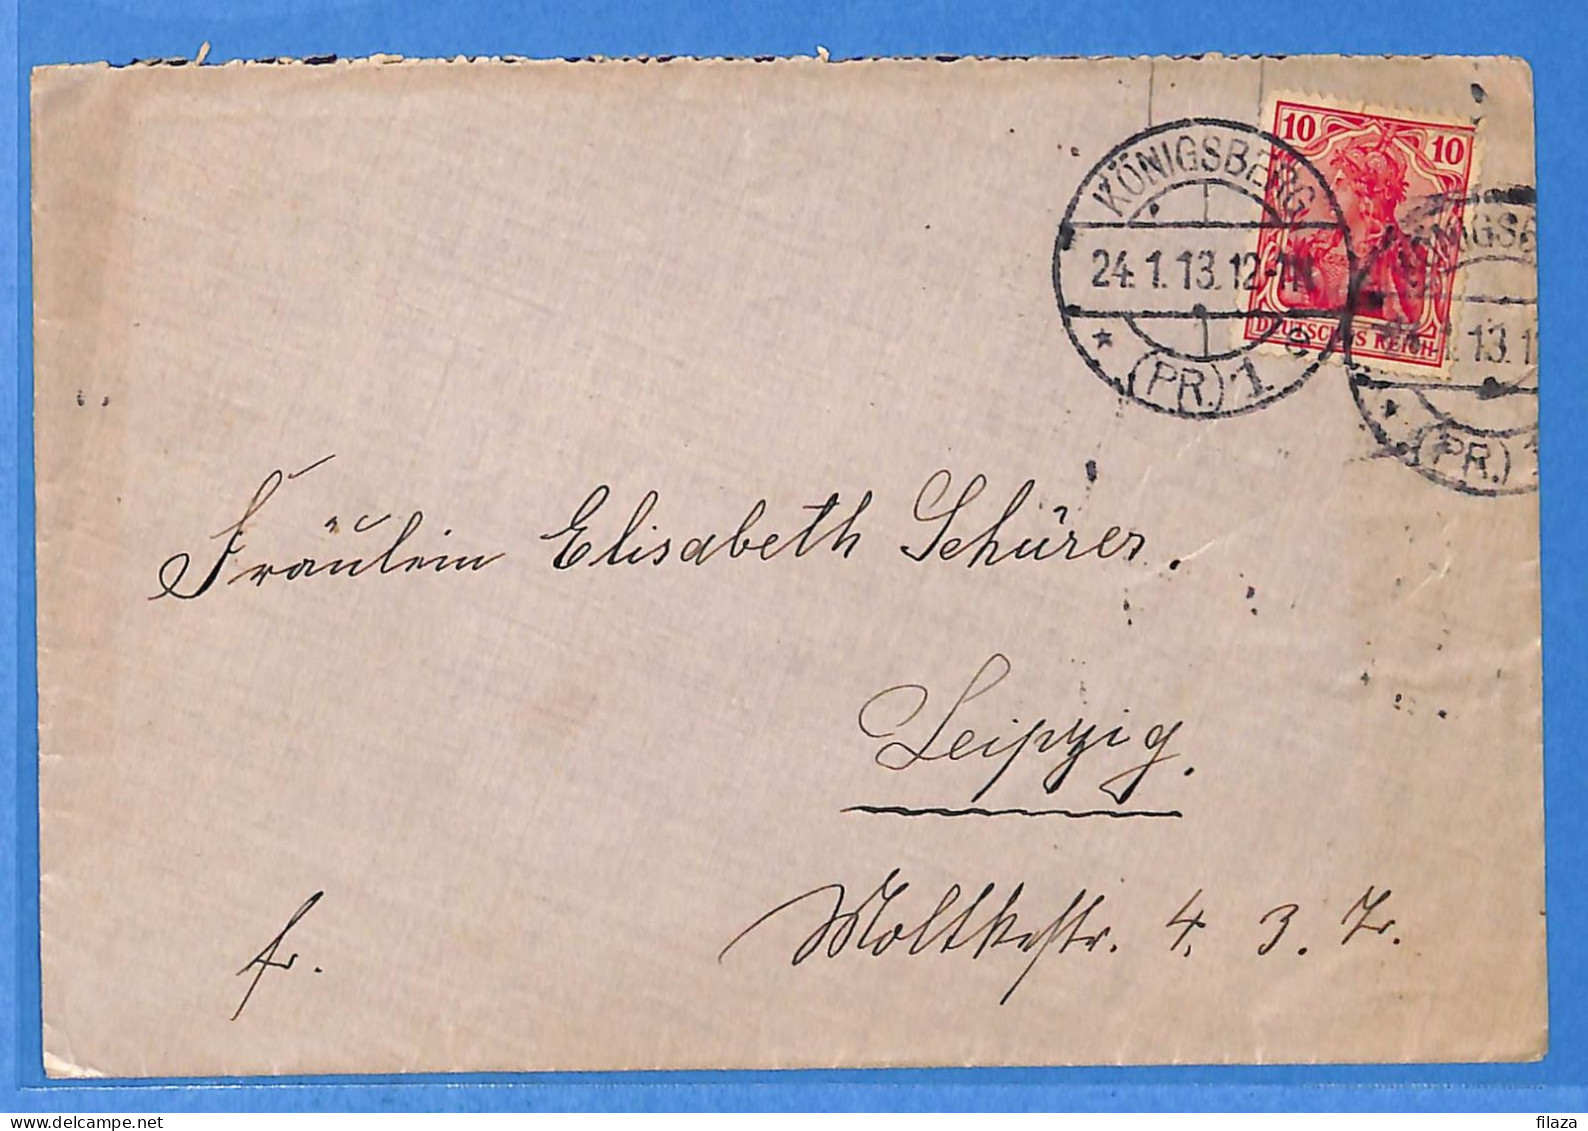 10 10
DEUTSCHES REICH
KÖNIGSBERG
24.1.13.12-1N
* (PR.) 1 e
KÖNIGSB
1.13.1
* (PR.) 1
Fräulein Elisabeth Schürer.
Leipzig.
Moltkestr. 4. 3. Tr.
fr.
www.delcampe.net
filaza